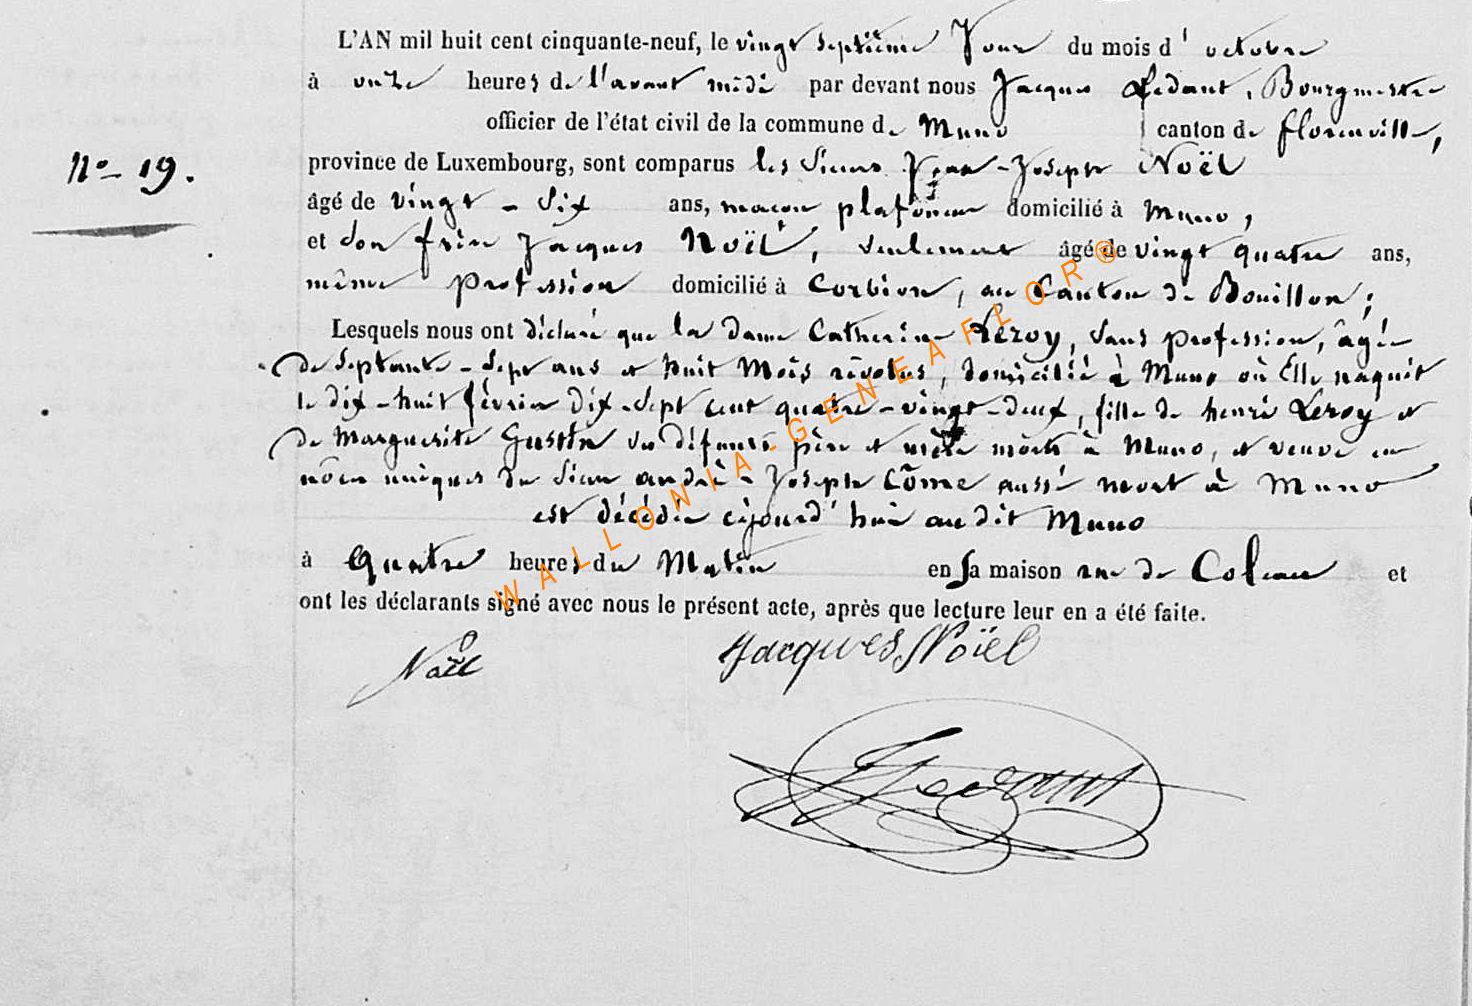 L'AN mil huit cent cinquante-neuf, le vingt septième Jour du mois d'octobre
à onze heures de l'avant midi par devant nous Jacques Ledant, Bourgmestre
officier de l'état civil de la commune de Muno canton de florenville,
N° 19.
province de Luxembourg, sont comparus les Sieurs Jean-Joseph Noël
âgé de vingt-six ans, maçon plafoneur domicilié à Muno,
et son frère Jacques Noël, seulement âgé de vingt quatre ans,
même profession domicilié à Corbion, au Canton de Bouillon;
Lesquels nous ont déclaré que la dame Catherine Leroy, sans profession, âgée
de septante-sept ans et huit mois révolus, domiciliée à Muno où Elle naquit
le dix-huit février dix-sept cent quatre-vingt-deux, fille de henri Leroy et
de Marguerite Gustin ses défunts père et mère morts à Muno, et veuve en
nôces uniques du Sieur andré-Joseph Côme aussi mort à Muno
est décédée cejourd'hui au dit Muno
à Quatre heures du Matin en sa maison rue de et
ont les déclarants signé avec nous le présent acte, après que lecture leur en a été faite.
Noël Jacques Noël
JLedant
WALLONIA-GENEAFLOR®